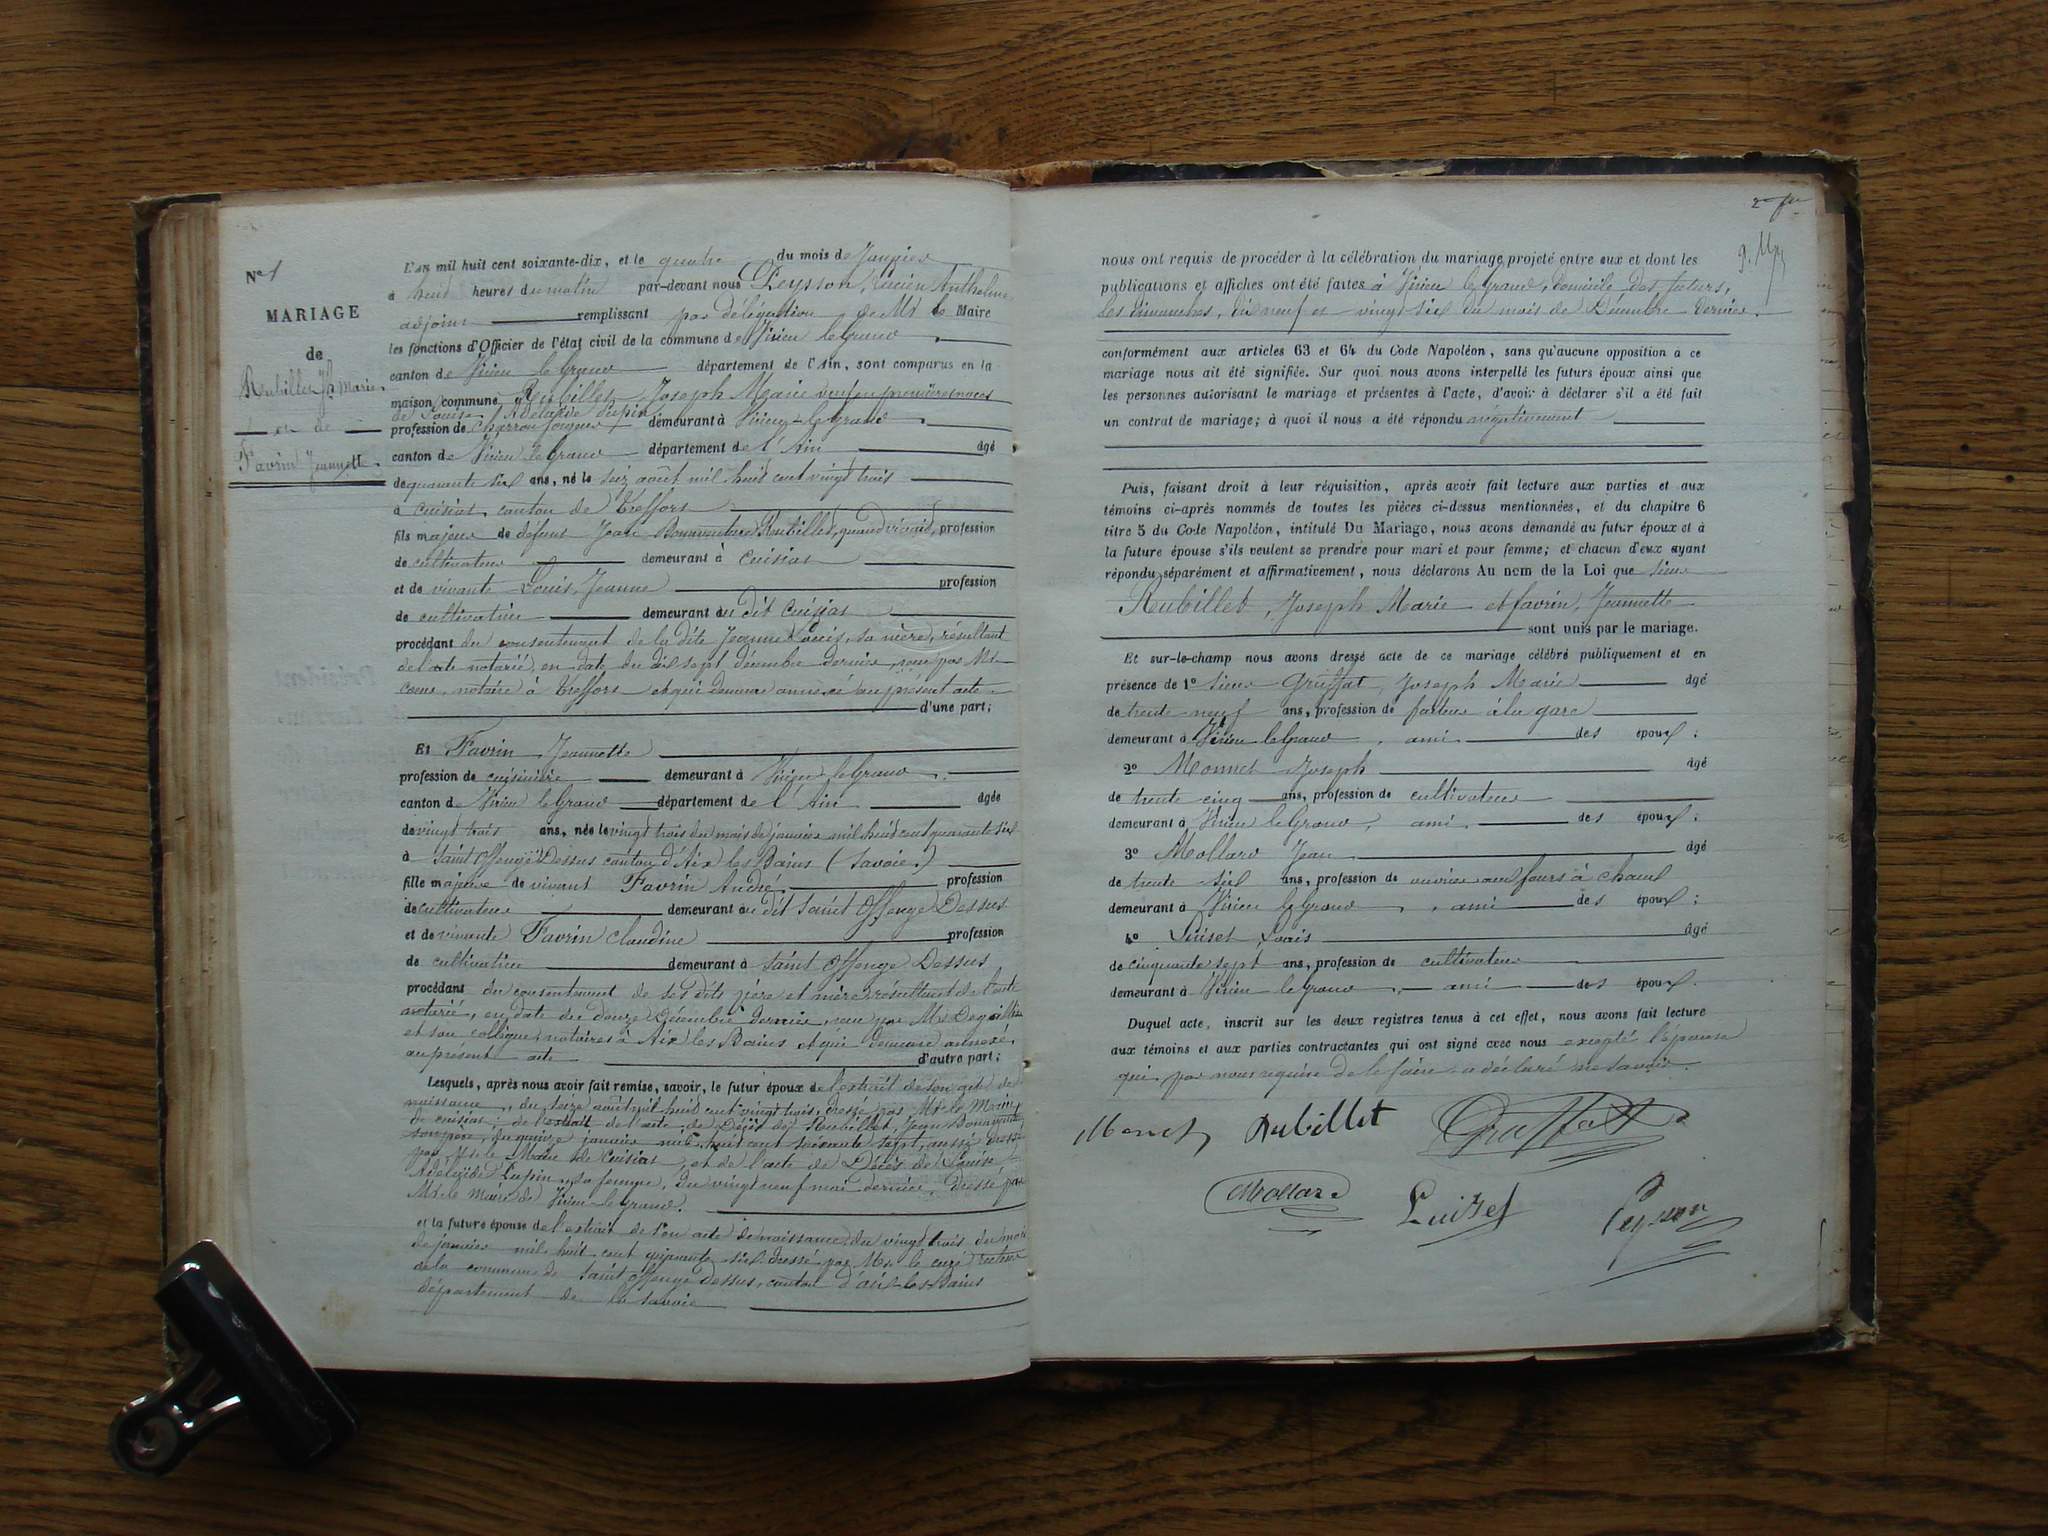 Nº 1
MARIAGE
de
Rubillet Jh Marie
et de
Favrin Jeannette
L'an mil huit cent soixante-dix, et le quatre du mois de Janvier
à huit heures du matin par-devant nous Peysson, Lucien Anthelme
adjoint remplissant par délégation de Mr le Maire
les fonctions d'Officier de l'état civil de la commune de Virieu le Grand
canton de Virieu le Grand département de l'Ain, sont comparus en la
maison commune Rubillet Joseph Marie veuf en premières noces
de Louise Adelaïde Lupin
profession de charron demeurant à Virieu-le-Grand
canton de Virieu le Grand département de l'Ain âgé
de quarante six ans, né le seize août mil huit cent vingt trois
à cuisiat, canton de Treffort
fils majeur de défunt Jean Bonaventure Rubillet, quand vivait, profession
de cultivateur demeurant à cuisiat
et de vivante Louis, Jeanne profession
de cultivatrice demeurant au dit Cuisiat
procédant du consentement de la dite Jeanne Louis, sa mère, résultant
de l'acte notarié, en date du dix sept décembre dernier, reçu par Mr
notaire à Treffort et qui demeure annexé au présent acte
d'une part;
Et Favrin Jeannette
profession de cuisinière demeurant à Virieu le Grand
canton de Virieu le Grand département de l'Ain âgée
de vingt trois ans, née le vingt trois du mois de janvier mil huit cent quarante six
à Saint Offenge Dessus canton d'Aix les Bains (Savoie)
fille majeure de vivant Favrin André profession
de cultivateur demeurant au dit Saint Offenge Dessus
et de vivante Favrin Claudine profession
de cultivatrice demeurant à Saint Offenge Dessus
procédant du consentement de ses dits père et mère résultant de l'acte
notarié, en date du douze Décembre dernier, reçu par Mr
et son collègue notaires à Aix les Bains et qui demeure annexé
au présent acte d'autre part;
Lesquels, après nous avoir fait remise, savoir, le futur époux de l'extrait de son acte de
naissance, du seize août mil huit cent vingt trois, dressé par Mr le Maire
de cuisiat, de l'extrait de l'acte de Décès de Rubillet, Jean Bonaventure
son père, du quinze janvier mil huit cent soixante sept, aussi dressé
par Mr le Maire de Cuisiat, et de l'acte de Décès de Louise
Adélaïde Lupin, sa femme, du vingt neuf mai dernier, dressé par
Mr le maire de Virieu-le-Grand.
et la future épouse de l'extrait de son acte de naissance du vingt trois du mois
de janvier mil huit cent quarante six dressé par Mr le curé recteur
de la commune de Saint Offenge dessus, canton d'aix-les-Bains
département de la Savoie
nous ont requis de procéder à la célébration du mariage projeté entre eux et dont les
publications et affiches ont été faites à Virieu le Grand, domicile des futurs,
les dimanches, dix neuf et vingt six du mois de Décembre dernier.
conformément aux articles 63 et 64 du Code Napoléon, sans qu'aucune opposition à ce
mariage nous ait été signifiée. Sur quoi nous avons interpellé les futurs époux ainsi que
les personnes autorisant le mariage et présentes à l'acte, d'avoir à déclarer s'il a été fait
un contrat de mariage; à quoi il nous a été répondu négativement
Puis, faisant droit à leur réquisition, après avoir fait lecture aux parties et aux
témoins ci-après nommés de toutes les pièces ci-dessus mentionnées, et du chapitre 6
titre 5 du Code Napoléon, intitulé Du Mariage, nous avons demandé au futur époux et à
la future épouse s'ils veulent se prendre pour mari et pour femme; et chacun d'eux ayant
répondu séparément et affirmativement, nous déclarons Au nom de la Loi que sieur
Rubillet, Joseph Marie et favrin, Jeannette
sont unis par le mariage.
Et sur-le-champ nous avons dressé acte de ce mariage célébré publiquement et en
présence de 1º sieur Gruffat, Joseph Marie âgé
de trente neuf ans, profession de facteur à la gare
demeurant à Virieu le Grand, ami des époux;
2º Monnet Joseph âgé
de trente cinq ans, profession de cultivateur
demeurant à Virieu le Grand, ami des époux;
3º Mollard Jean âgé
de trente six ans, profession de ouvrier aux fours à chaux
demeurant à Virieu le Grand, ami des époux;
4º Luiset Louis âgé
de cinquante sept ans, profession de cultivateur
demeurant à Virieu le Grand, ami des époux.
Duquel acte, inscrit sur les deux registres tenus à cet effet, nous avons fait lecture
aux témoins et aux parties contractantes qui ont signé avec nous excepté l'épouse
qui par nous requise de le faire a déclaré ne savoir.
Monnet Rubillet Gruffat
Mollard Luizet Peysson